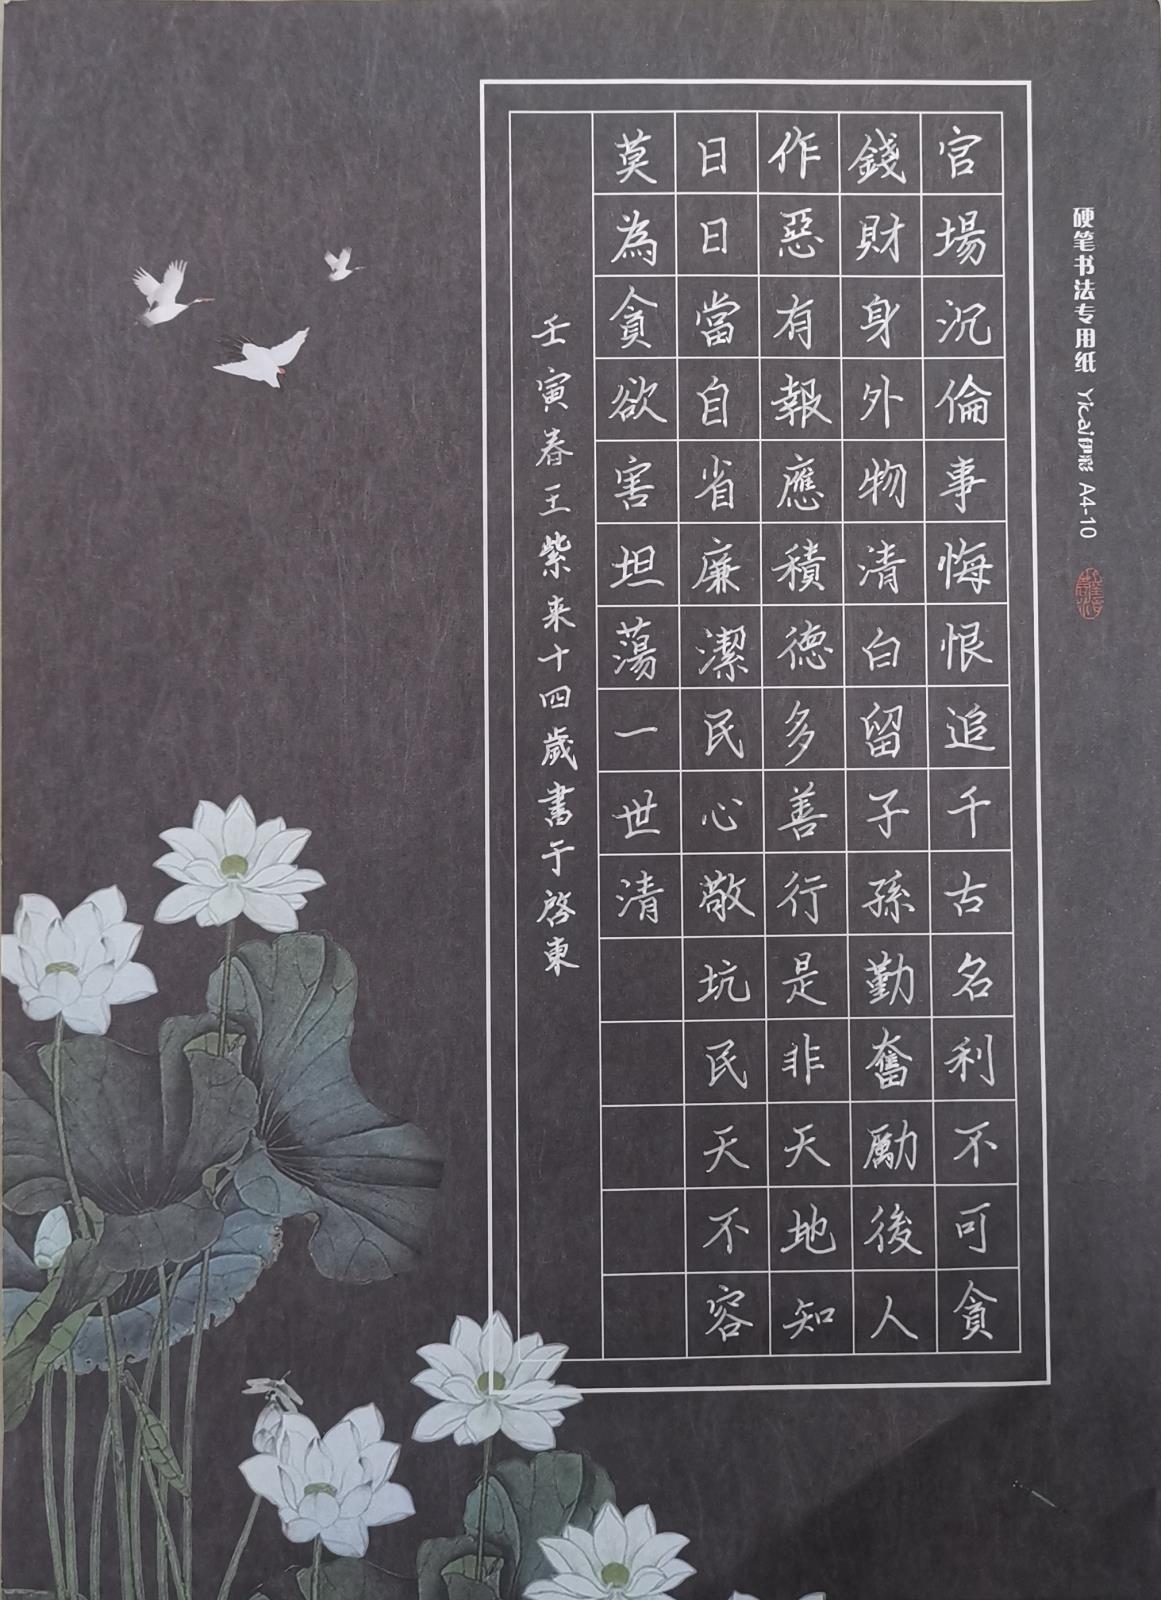 硬笔书法专用纸 Yicai伊彩 A4-10
官場沉倫事悔恨追千古名利不可貪
錢財身外物清白留子孫勤奮勵後人
作惡有報應積德多善行是非天地知
日日當自省廉潔民心敬坑民天不容
莫為貪欲害坦蕩一世清
壬寅春王紫来十四歲書于啓東